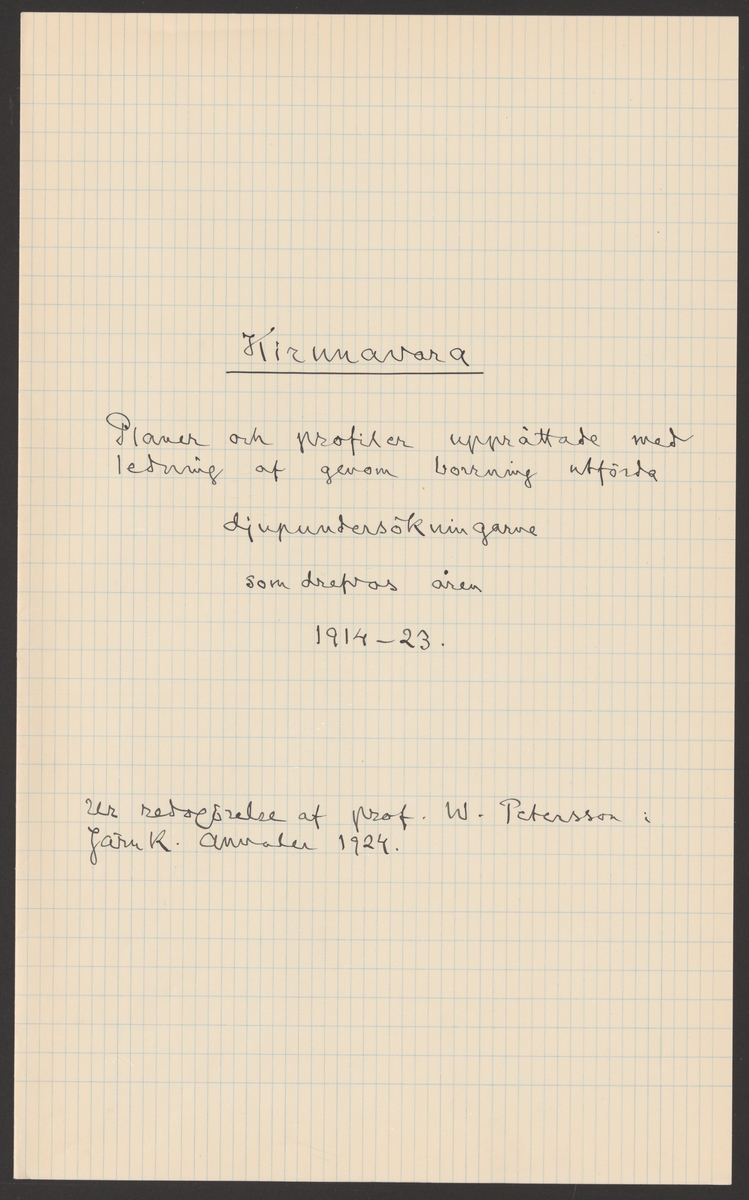 Kirunavara
Planer och profiler upprättade med
ledning af genom borrning utförda
djupundersökningarne
som drefvos åren
1914-23.
Ur redogörelse af prof. W. Petersson i
JärnK. Annaler 1924.